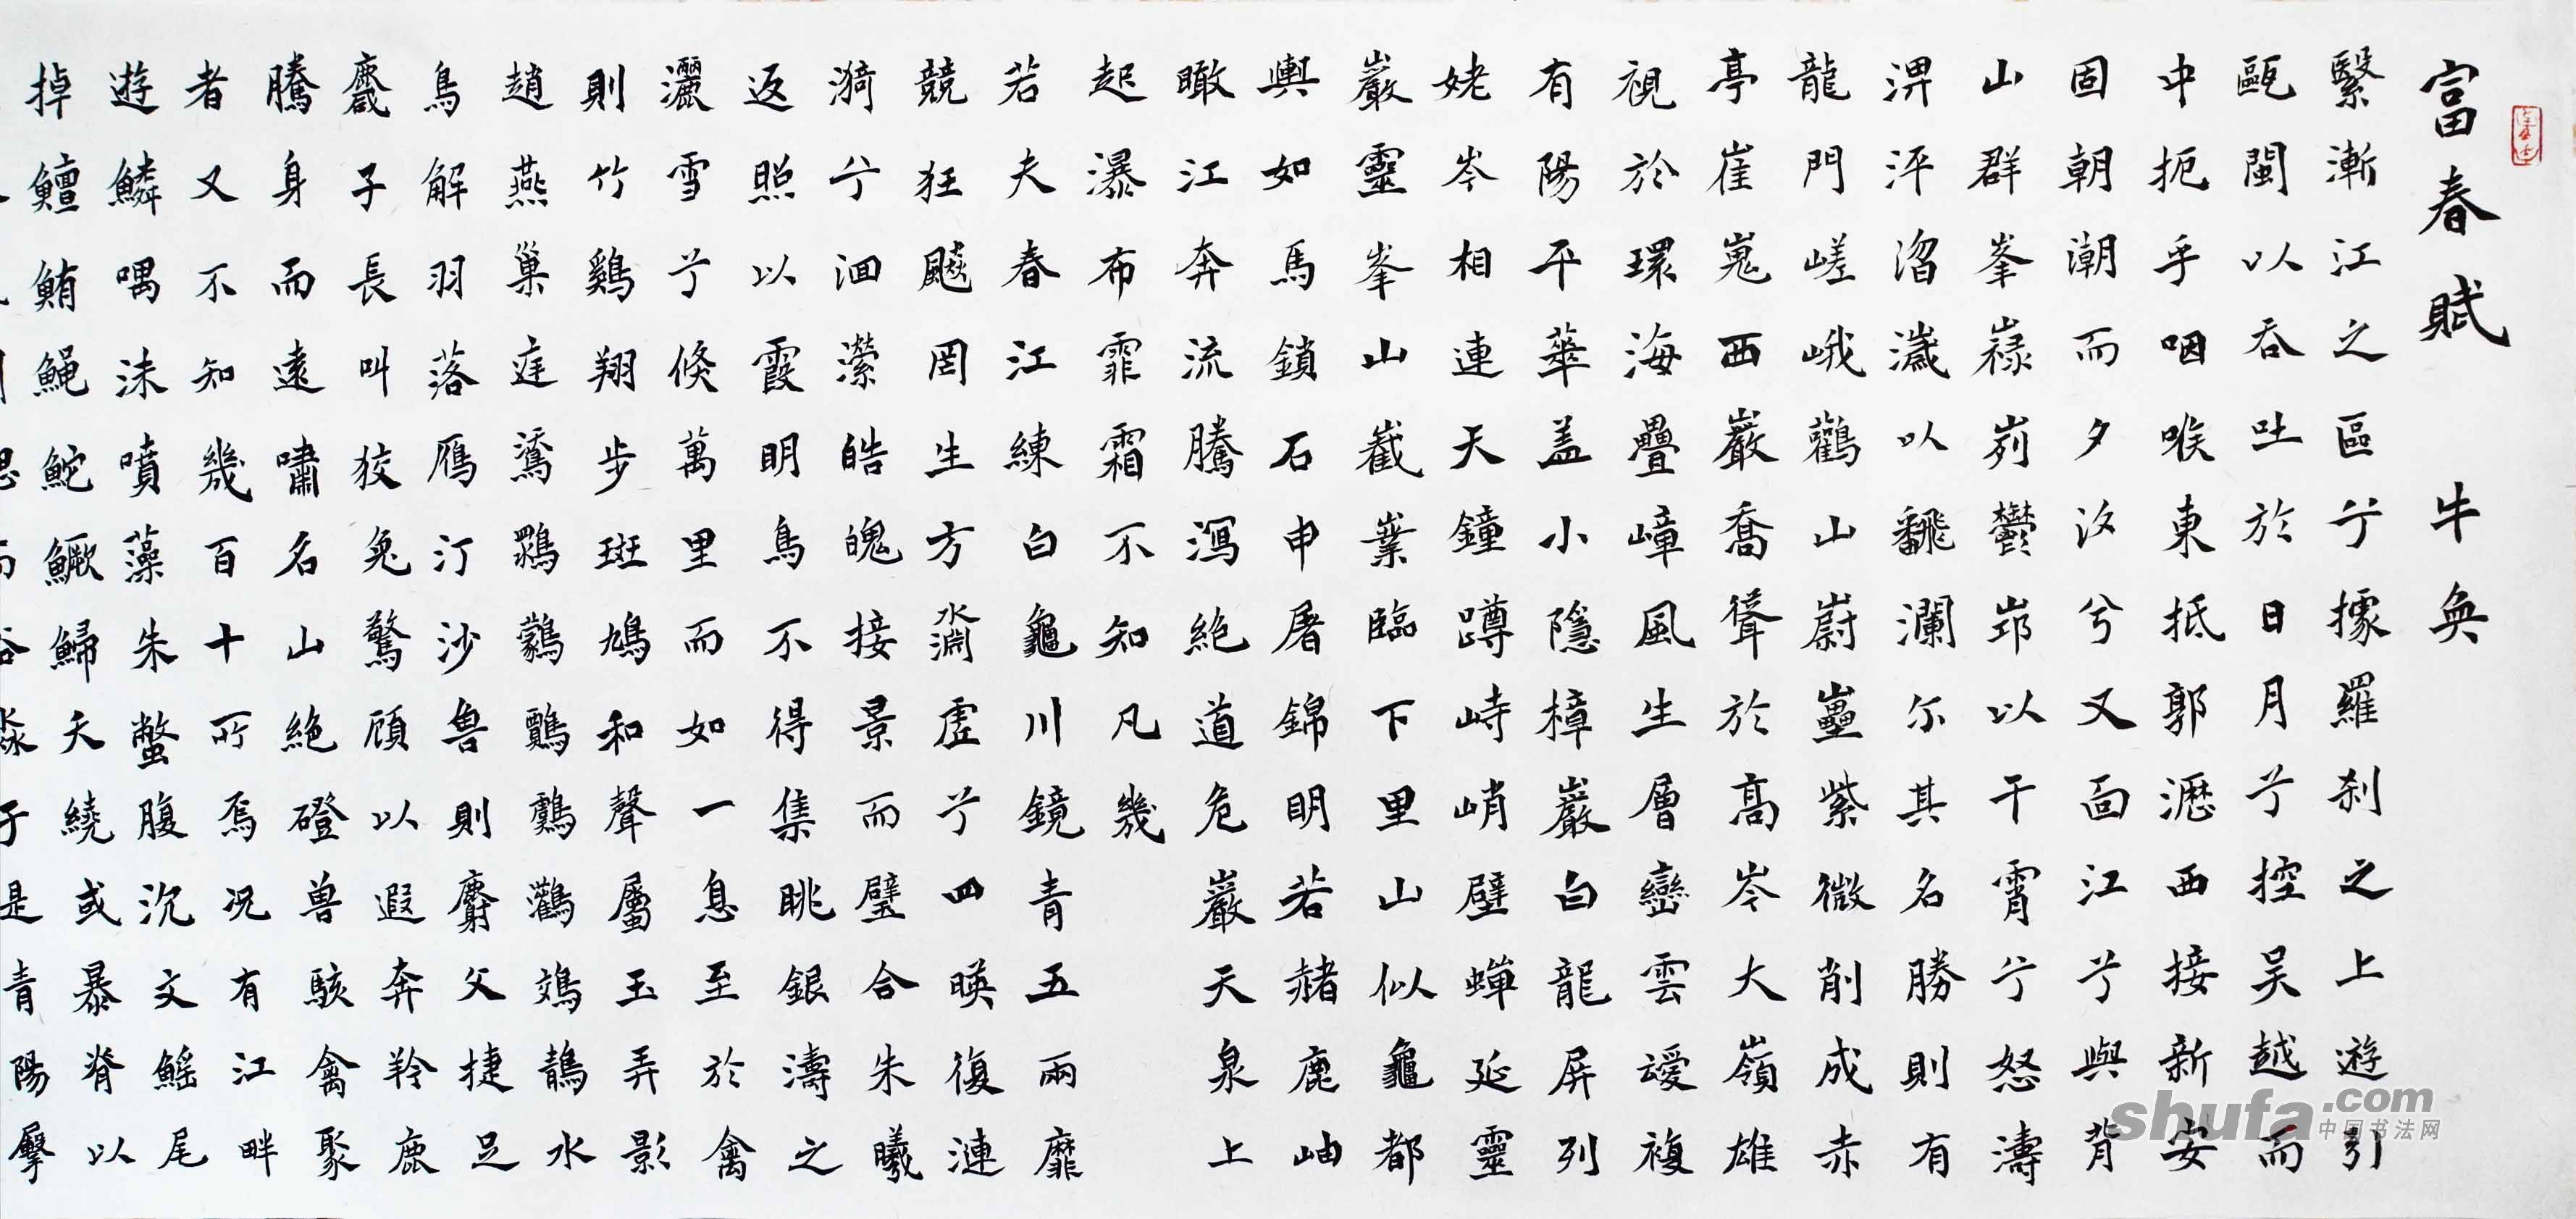 富春賦 牛奐
繄漸江之區兮據羅刹之上遊引
甌閩以吞吐於日月兮控吴越而
中扼乎咽喉東抵郭瀝西接新安
固朝潮而夕汐兮又面江兮與背
山群峯嶸峛鬱峁以干霄兮怒濤
淠泙滔濊以飜瀾尔其名勝則有
龍門嵯峨鸛山蔚壘紫微削成赤
亭崔嵬西巖喬聳於高岑大嶺雄
視於環海疊嶂風生層巒雲靉複
有陽平華盖小隱樟巖白龍屏列
姥岑相連天鐘蹲峙峭壁蟬延靈
巖靈峯山巀嶪臨下里山似龜都
輿如馬鎖石申屠錦明若赭鹿岫
瞰江奔流騰瀉絶道危巖天泉上
起瀑布霏霜不知凡幾
若夫春江練白龜川鏡青五兩靡
競狂飈罔生方淵虚兮四暎復漣
漪兮洄瀠皓魄接景而璧合朱曦
返照以霞明鳥不得集眺銀濤之
灑雪兮倏萬里而如一息至於禽
則竹鷄翔步斑鳩和聲屬玉弄影
趙燕巢庭鴻鸂鷫鸛鵁鶄水
鳥解羽落雁汀沙兽則麝父捷足
麙子長叫狡兔驚顧以遐奔羚鹿
騰身而遠嘯名山絶磴兽駭禽聚
者又不知幾百十所焉况有江畔
遊鱗喁沫噴藻朱鱉腹沉文鰩尾
掉鱣鮪鮀鱖鯞夭繞或暴脊以
青陽擊
shufa.com
中国书法网